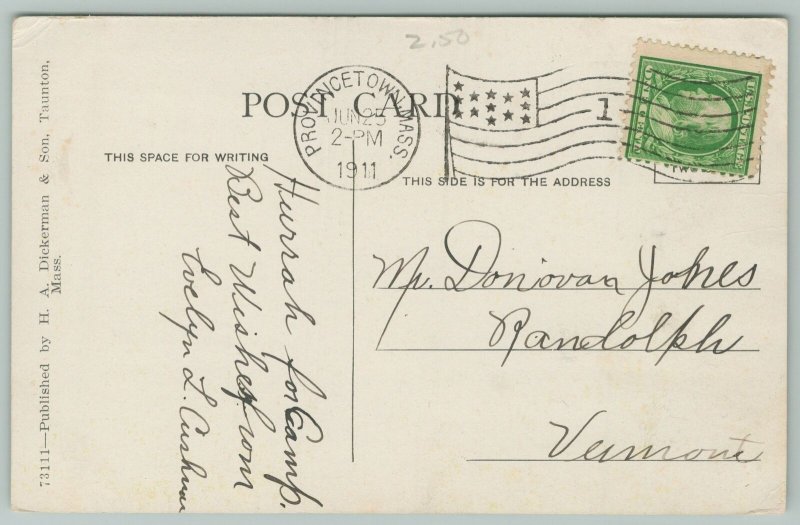 2.50
POST CARD
PROVINCETOWN, MASS.
JUN 25
2-PM
1911
1
THIS SPACE FOR WRITING
THIS SIDE IS FOR THE ADDRESS
73111—Published by H. A. Dickerman & Son, Taunton, Mass.
Hurrah for Camp.
Best Wishes from
Evelyn L. Cushman
Mr. Donovan Jones
Randolph
Vermont